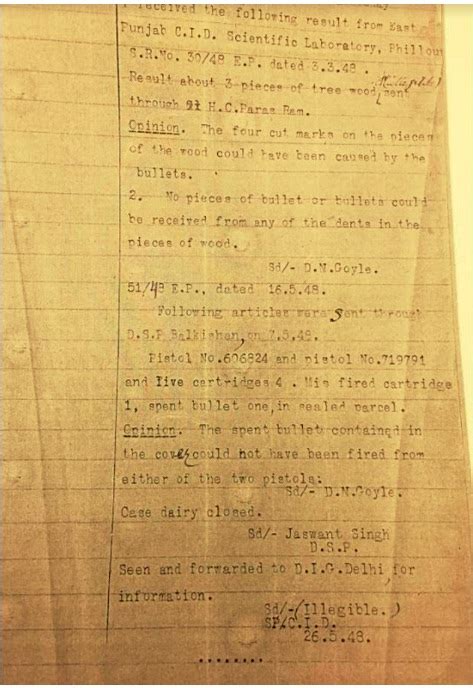 received the following result from East
Punjab C.I.D. Scientific Laboratory, Phillour
S.R.No. 30/48 E.P. dated 3.3.48.
Result about 3 pieces of tree wood, sent
through H.C.Paras Ram.
Opinion. The four cut marks on the pieces
of the wood could have been caused by the
bullets.
2. No pieces of bullet or bullets could
be received from any of the dents in the
pieces of wood.
Sd/- D.N.Goyle.
51/48 E.P., dated 16.5.48.
Following articles were sent through
D.S.P Balkishan, on 7.5.48.
Pistol No.606824 and pistol No.719791
and live cartridges 4 . Mis fired cartridge
1, spent bullet one, in sealed parcel.
Opinion. The spent bullet contained in
the cover could not have been fired from
either of the two pistols.
Sd/- D.N.Goyle.
Case dairy closed.
Sd/- Jaswant Singh
D.S.P.
Seen and forwarded to D.I.G.Delhi for
information.
Sd/-(Illegible.)
SP/C.I.D.
26.5.48.